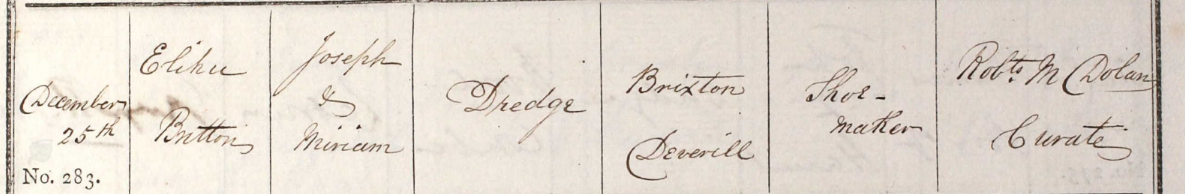 December
25th
No. 283.
Elihu
Britton
Joseph
&
Miriam
Dredge
Brixton
Deverill
Shoe-
maker
Robts. M Dolan
Curate